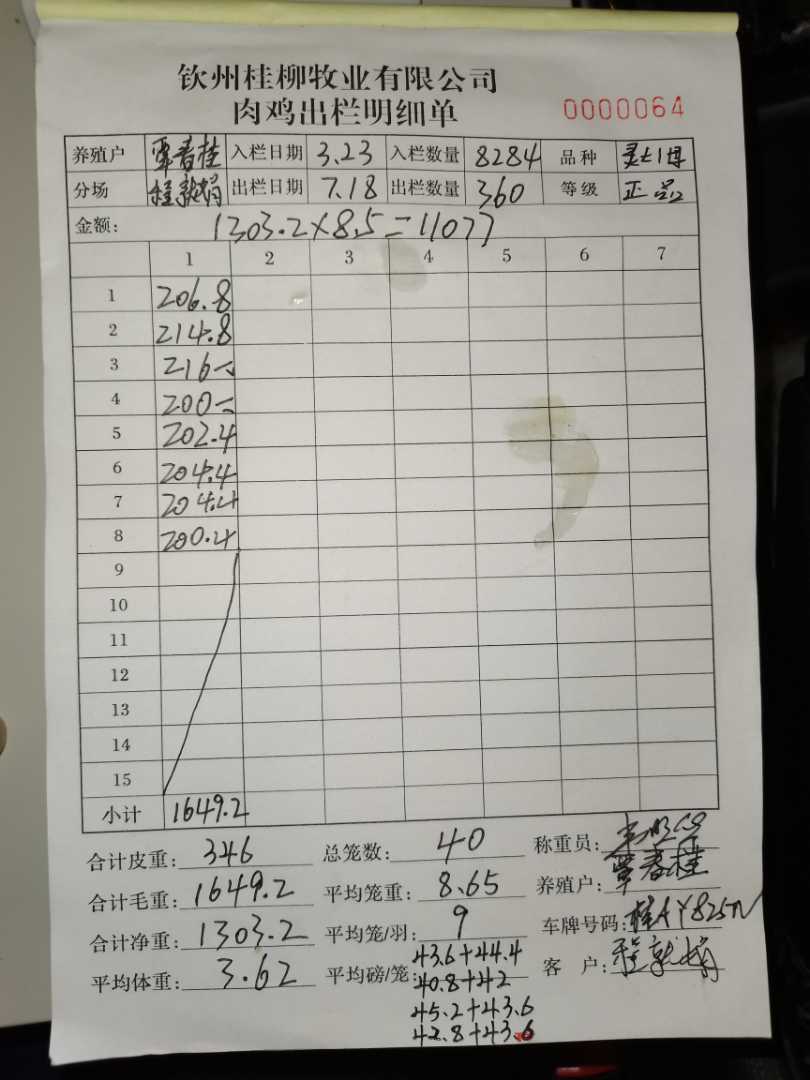 钦州桂柳牧业有限公司
肉鸡出栏明细单 0000064
养殖户 覃春桂 入栏日期 3.23 入栏数量 8284 品种
分场 程就娟 出栏日期 7.18 出栏数量 360 等级 正品
金额: 1303.2×8.5=11077
1 2 3 4 5 6 7
1 206.8
2 214.8
3 216-
4 200-
5 202.4
6 204.4
7 204.4
8 200.4
9
10
11
12
13
14
15
小计 1649.2
合计皮重: 346 总笼数: 40 称重员:
合计毛重: 1649.2 平均笼重: 8.65 养殖户: 覃春桂
合计净重: 1303.2 平均笼/羽: 9 车牌号码: 桂AY825N
平均体重: 3.62 平均磅/笼: 43.6+44.4 客 户: 程就娟
40.8+42
45.2+43.6
42.8+43.6